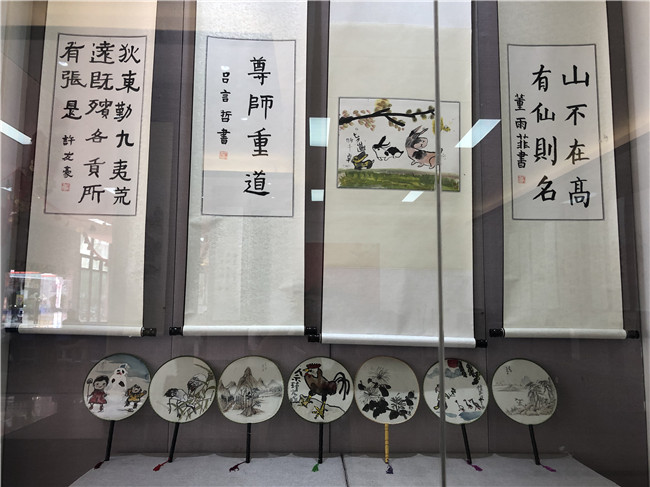 狄東勤九夷荒
遠既殯各貢所
有張是
尊師重道
吕言哲書
山不在髙
有仙則名
董雨菲書